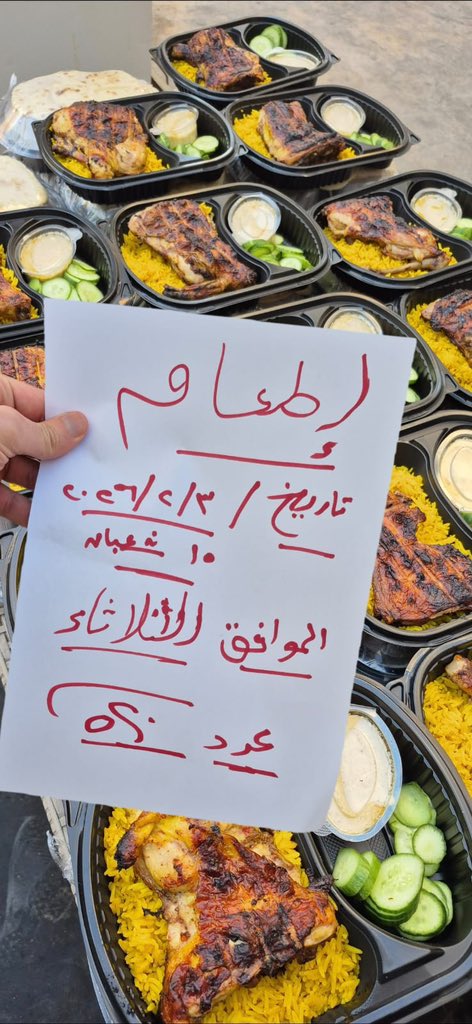 إطعام
تاريخ / ٢٠٢٦/٢/٣
١٥ شعبان
الموافق الثلاثاء
عدد